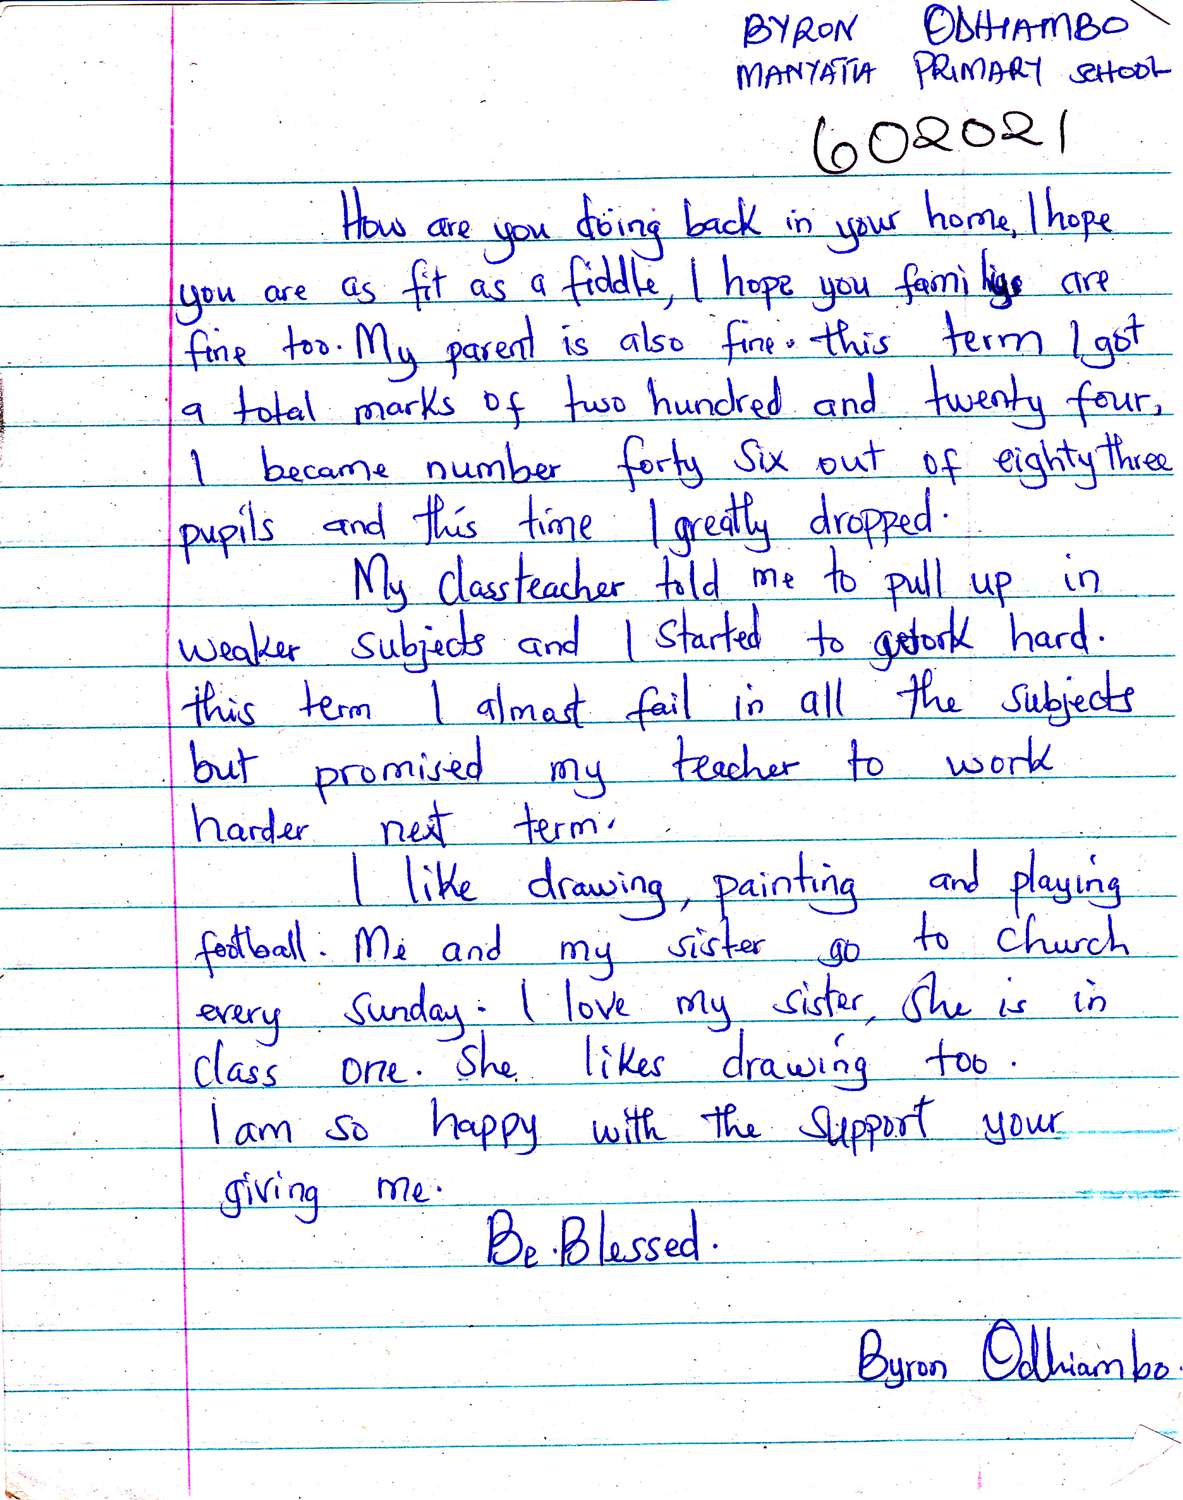 BYRON ODHIAMBO
MANYATTA PRIMARY SCHOOL
602021
How are you doing back in your home, I hope
you are as fit as a fiddle, I hope you families are
fine too. My parent is also fine. this term I got
a total marks of two hundred and twenty four,
I became number forty six out of eighty three
pupils and this time I greatly dropped.
My classteacher told me to pull up in
weaker subjects and I started to work hard.
this term I almost fail in all the subjects
but promised my teacher to work
harder next term.
I like drawing, painting and playing
football. Me and my sister go to church
every Sunday. I love my sister, She is in
class one. She likes drawing too.
I am so happy with the support your
giving me.
Be Blessed.
Byron Odhiambo.